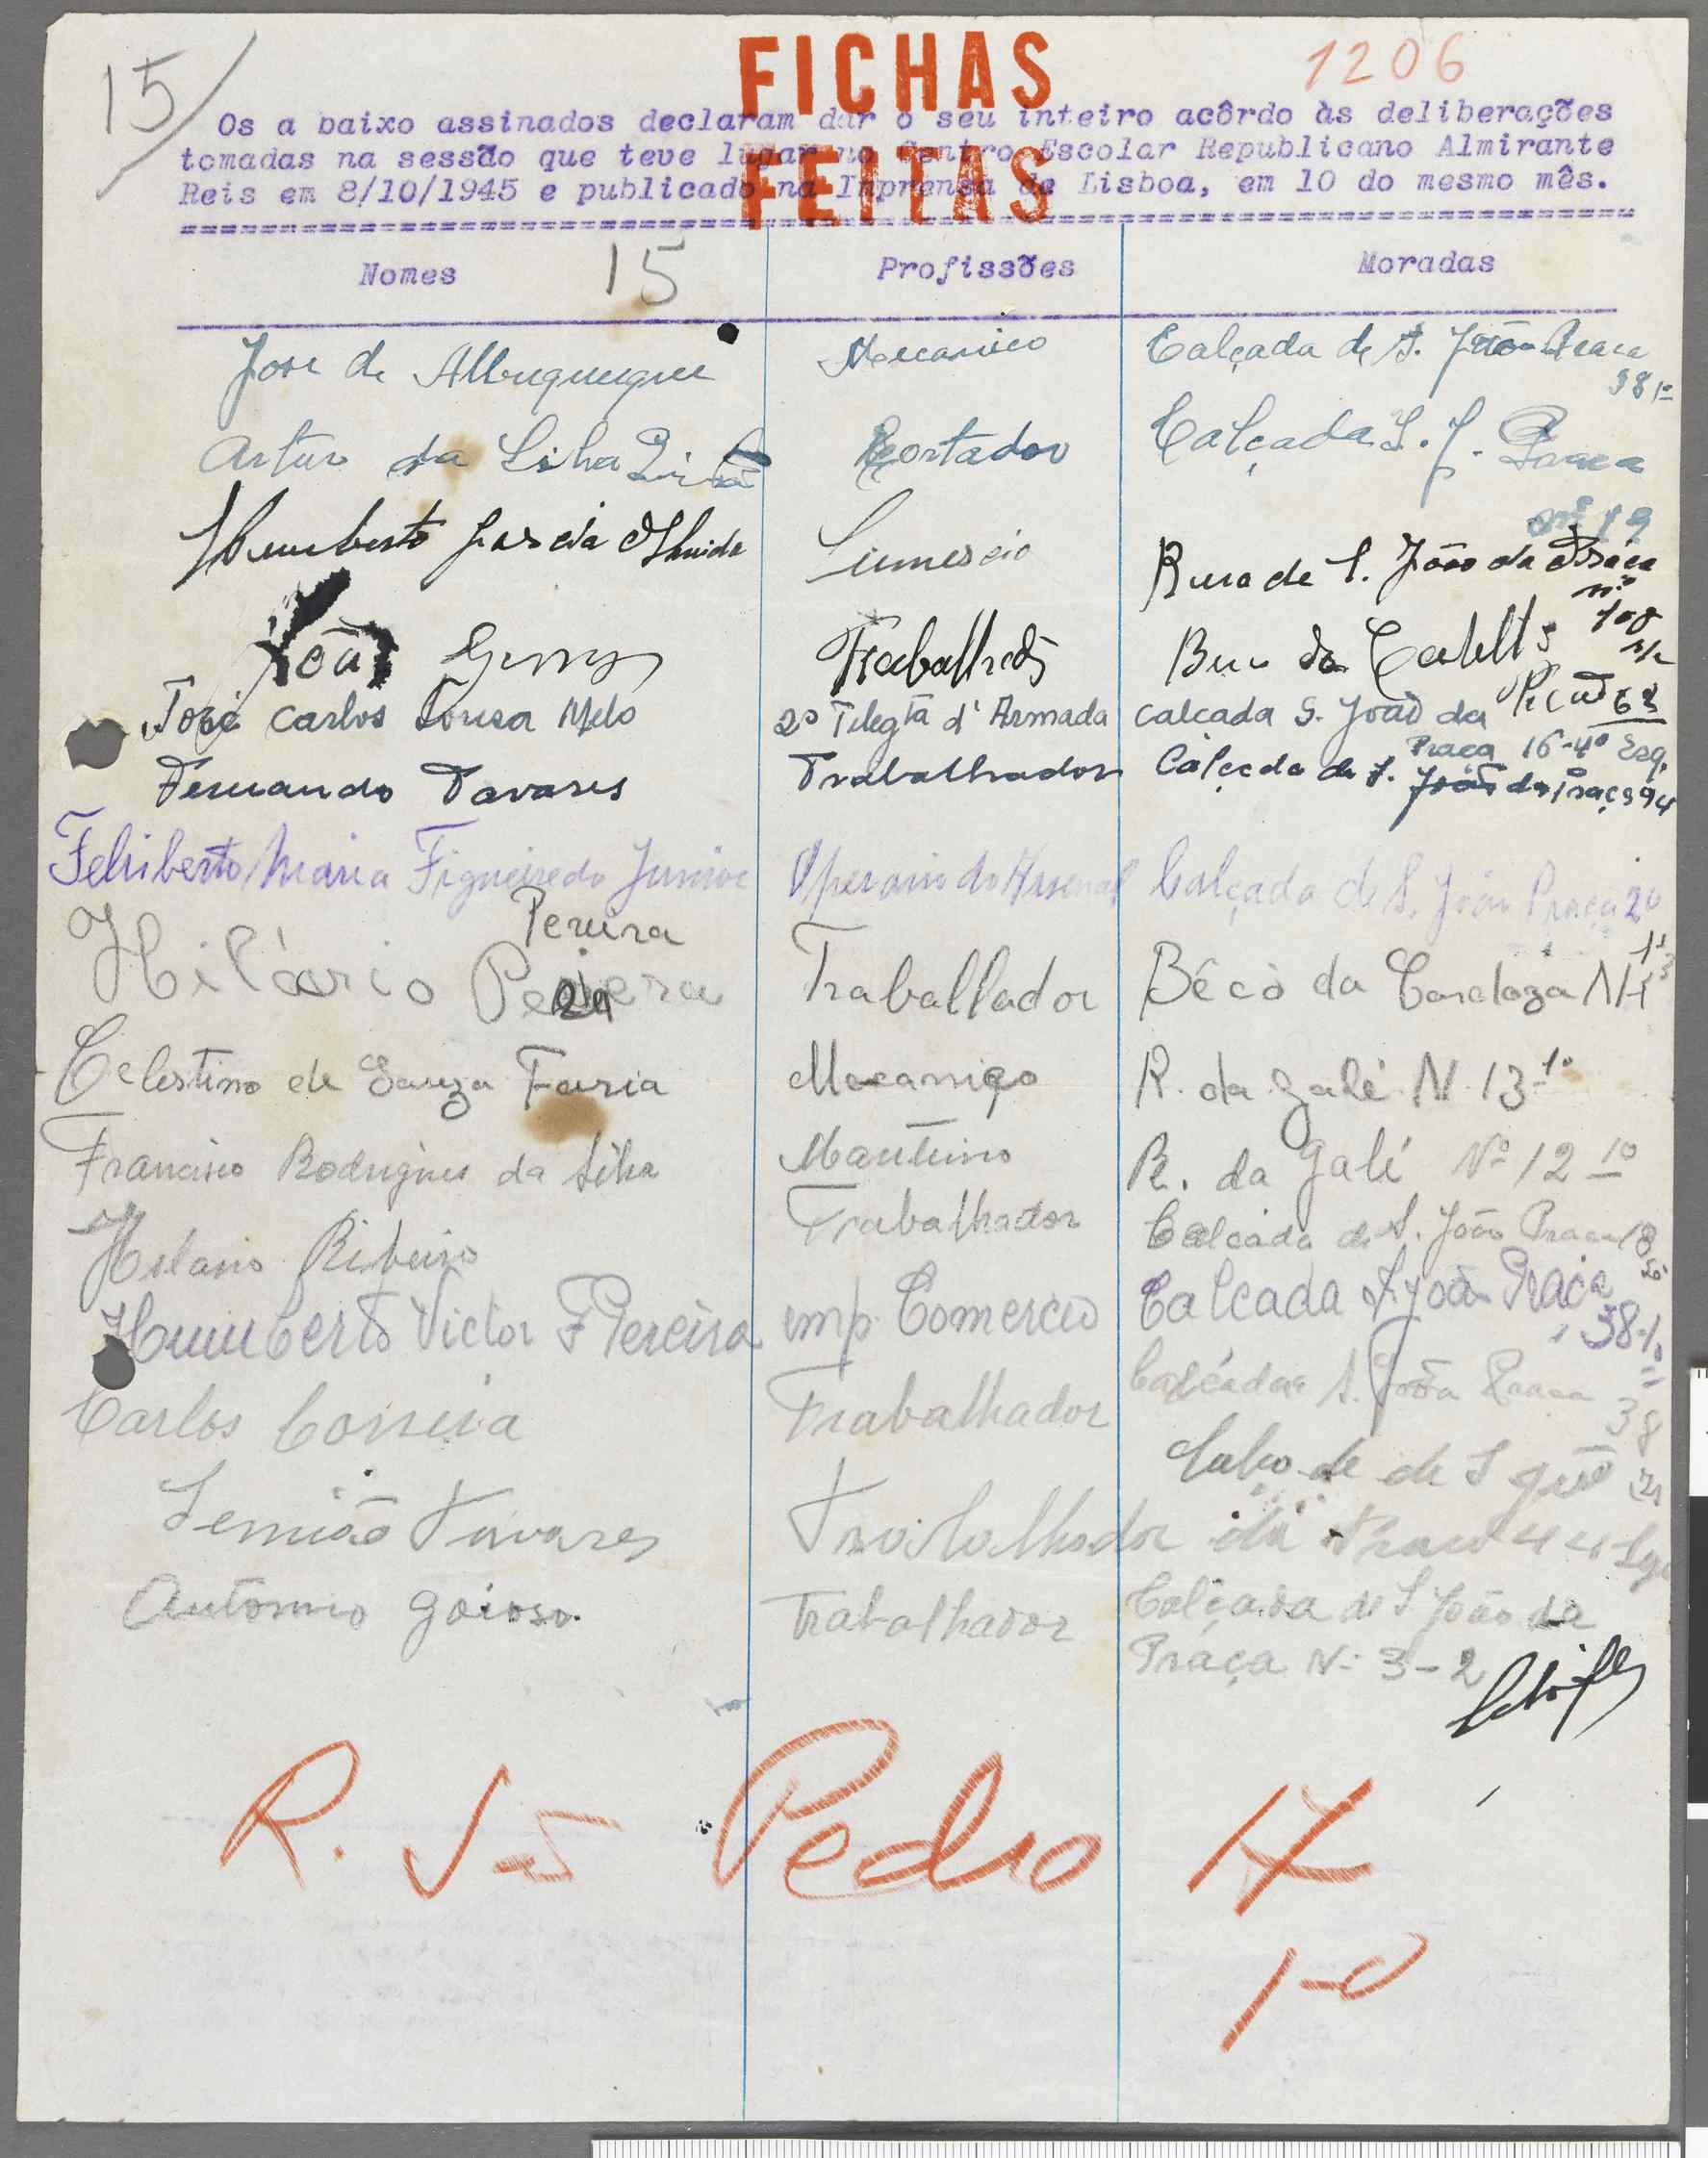 15/
FICHAS
FEITAS
1206
Os a baixo assinados declaram dar o seu inteiro acôrdo às deliberações
tomadas na sessão que teve lugar no Centro Escolar Republicano Almirante
Reis em 8/10/1945 e publicado na Imprensa de Lisboa, em 10 do mesmo mês.
Nomes 15 Profissões Moradas
Jose de Albuquerque Mecanico Calçada de S. João Praca
98 1º
Artur da Silva Cortador Calçada S. J. Praca
nº 19
Humberto Garcia Almeida Cumercio Rua de S. João da Praca
nº
108
João Trabalhador
José Carlos Sousa Melo 2º Telegta d'Armada calcada S. João da
Praça 16-4º Esq.
Fernando Tavares Trabalhador Calçada de S. João da Praça 94
Feliberto Maria Figueiredo Junior Operario do Arsenal Calçada de S. João Praça 20
Pereira
Hilário Pereira Traballador Bécò da Cardoza
Celestino de Souza Faria Mecanico R. da Galé N 13-1º
Francisco Rodrigues da Silva R. da Galé Nº 12 1º
Hilario Ribeiro Trabalhador Calcada de S. João Praca 18
Humberto Victor F Pereira emp. Comercio Calcada S. João Praça
38-1º
Carlos Correia Trabalhador Calcada S. João Praca 38
Semião Tavares Trabalhador
Antonio Goioso Trabalhador Calçada de S João da
Praça Nº 3-2
R. Pedro 17
1-0